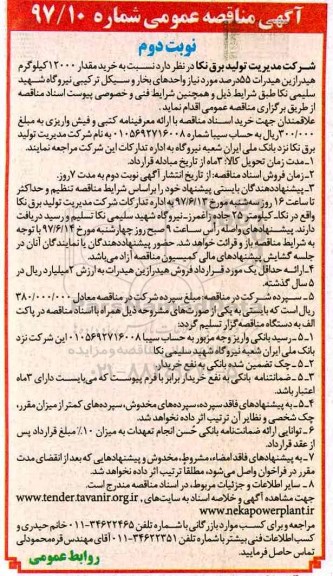 آگهی مناقصه عمومی شماره ۹۷/۱۰
نوبت دوم
شرکت مدیریت تولید برق نکا در نظر دارد نسبت به خرید مقدار ۱۲۰۰۰ کیلوگرم
هیدرازین هیدرات ۵۵ درصد مورد نیاز واحدهای بخار و سیکل ترکیبی نیروگاه شهید
سلیمی نکا طبق شرایط ذیل و همچنین شرایط فنی و خصوصی پیوست اسناد مناقصه
از طریق برگزاری مناقصه عمومی اقدام نماید.
علاقمندان جهت خرید اسناد مناقصه با ارائه معرفینامه کتبی و فیش واریزی به مبلغ
۳۰۰/۰۰۰ ریال به حساب سیبا شماره ۰۱۰۵۶۹۲۷۱۶۰۰۸ به نام شرکت مدیریت تولید
برق نکا نزد بانک ملی ایران شعبه نیروگاه به اداره تدارکات این شرکت مراجعه نمایند.
۱-مدت زمان تحویل کالا: ۳ ماه از تاریخ مبادله قرارداد.
۲-زمان فروش اسناد مناقصه: از تاریخ انتشار آگهی نوبت دوم به مدت ۷ روز.
۳-پیشنهاددهندگان بایستی پیشنهاد خود را براساس شرایط مناقصه تنظیم و حداکثر
تا ساعت ۱۶ روز سه‌شنبه مورخ ۹۷/۶/۱۳ به اداره تدارکات شرکت مدیریت تولید برق نکا
واقع در نکا-کیلومتر ۲۵ جاده زاغمرز-نیروگاه شهید سلیمی نکا تسلیم و رسید دریافت
دارند. پیشنهادهای واصله رأس ساعت ۹ صبح روز چهارشنبه مورخ ۹۷/۶/۱۴ با توجه
به شرایط مناقصه باز و قرائت خواهد شد. حضور پیشنهاددهندگان یا نمایندگان آنان در
جلسه گشایش پیشنهادهای مالی کمیسیون مناقصه آزاد می‌باشد.
۴-ارائه حداقل یک مورد قرارداد فروش هیدرازین هیدرات به ارزش ۲ میلیارد ریال در
۵ سال گذشته.
۵-سپرده شرکت در مناقصه: مبلغ سپرده شرکت در مناقصه معادل ۳۸۰/۰۰۰/۰۰۰
ریال است که بایستی به یکی از صورت‌های مشروحه ذیل همراه با اسناد مناقصه در پاکت
الف به دستگاه مناقصه‌گزار تسلیم گردد:
۵-۱-رسید بانکی واریز وجه مزبور به حساب سیبا ۰۱۰۵۶۹۲۷۱۶۰۰۸ این شرکت نزد
بانک ملی ایران شعبه نیروگاه شهید سلیمی نکا
۵-۲-چک تضمین شده بانکی به نفع خریدار.
۵-۳-ضمانتنامه بانکی به نفع خریدار برابر با فرم پیوست که می‌بایست دارای ۳ ماه
اعتبار باشد.
۵-۴-به پیشنهادهای فاقد سپرده، سپرده‌های مخدوش، سپرده‌های کمتر از میزان مقرر،
چک شخصی و نظایر آن ترتیب اثر داده نخواهد شد.
۶-توانایی ارائه ضمانت‌نامه بانکی حسن انجام تعهدات به میزان ۱۰٪ مبلغ قرارداد پس
از عقد قرارداد.
۷-به پیشنهادهای فاقد امضاء، مشروط، مخدوش و پیشنهادهایی که بعد از انقضای مدت
مقرر در فراخوان واصل می‌شود، مطلقا ترتیب اثر داده نخواهد شد.
۸-سایر اطلاعات و جزئیات مربوط، در اسناد مناقصه مندرج است.
جهت مشاهده آگهی و خلاصه اسناد به سایت‌های www.tender.tavanir.org.ir ,
www.nekapowerplant.ir
مراجعه و برای کسب موارد بازرگانی با شماره تلفن ۳۴۶۲۲۴۶۵-۰۱۱ خانم حیدری و
کسب اطلاعات فنی بیشتر با شماره تلفن ۳۴۶۲۲۳۵۱-۰۱۱ آقای مهندس قره‌محمودلی
تماس حاصل فرمایید.
روابط عمومی